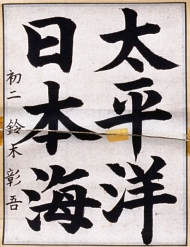 太平洋
日本海
初二 鈴木彰吾